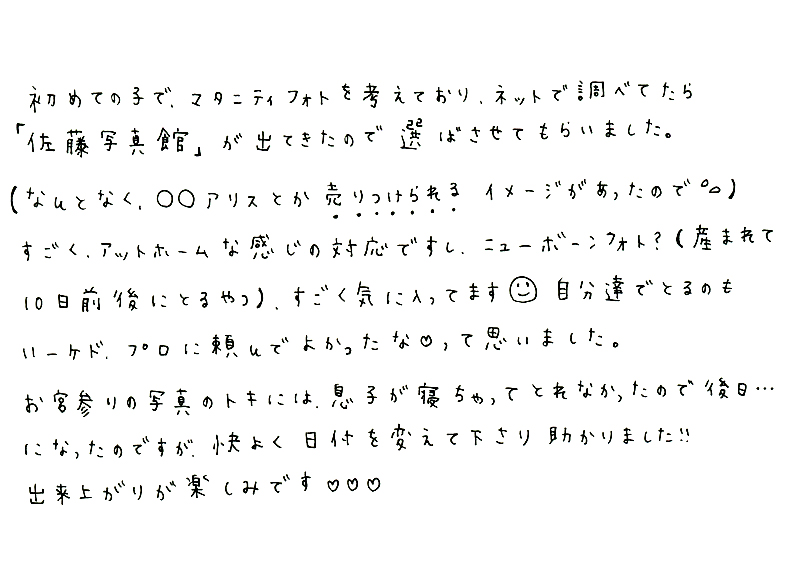 初めての子で、マタニティフォトを考えており、ネットで調べてたら
「佐藤写真館」が出てきたので選ばさせてもらいました。
(なんとなく、○○アリスとか売りつけられるイメージがあったので💦)
すごく、アットホームな感じの対応ですし、ニューボーンフォト?(産まれて
10日前後にとるやつ)、すごく気に入ってます☺自分達でとるのも
いーケド、プロに頼んでよかったな♡って思いました。
お宮参りの写真のトキには、息子が寝ちゃってとれなかったので後日…
になったのですが、快よく日付を変えて下さり助かりました!!
出来上がりが楽しみです♡♡♡